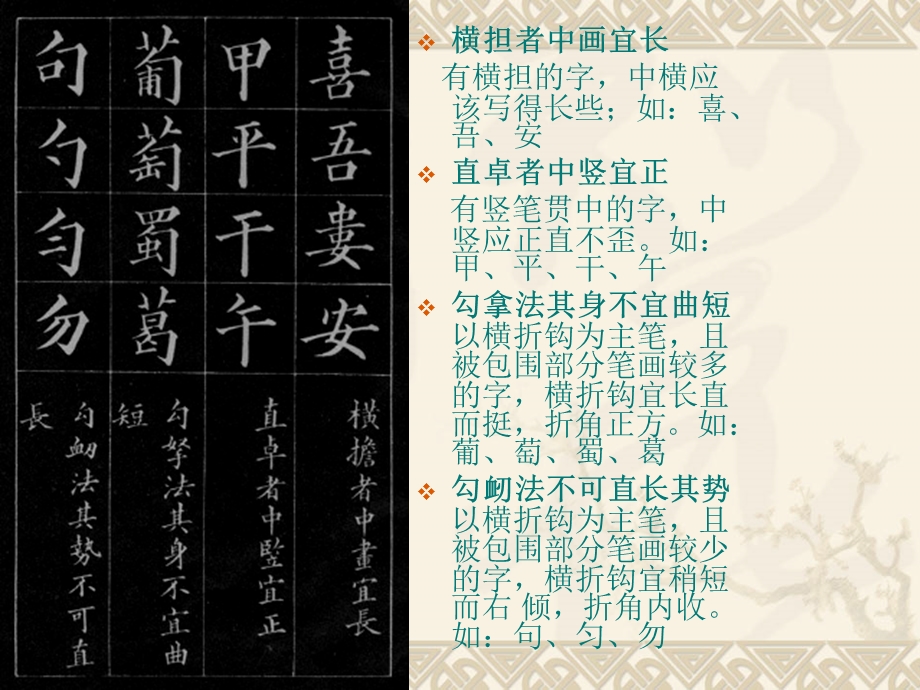 喜吾婁安
橫擔者中畫宜長
甲平干午
直卓者中竪宜正
葡萄蜀葛
勾拏法其身不宜曲
短
句勺勻勿
勾衂法其勢不可直
長
横担者中画宜长
有横担的字，中横应
该写得长些；如：喜、
吾、安
直卓者中竖宜正
有竖笔贯中的字，中
竖应正直不歪。如：
甲、平、干、午
勾拿法其身不宜曲短
以横折钩为主笔，且
被包围部分笔画较多
的字，横折钩宜长直
而挺，折角正方。如：
葡、萄、蜀、葛
勾衂法不可直长其势
以横折钩为主笔，且
被包围部分笔画较少
的字，横折钩宜稍短
而右 倾，折角内收。
如：句、匀、勿